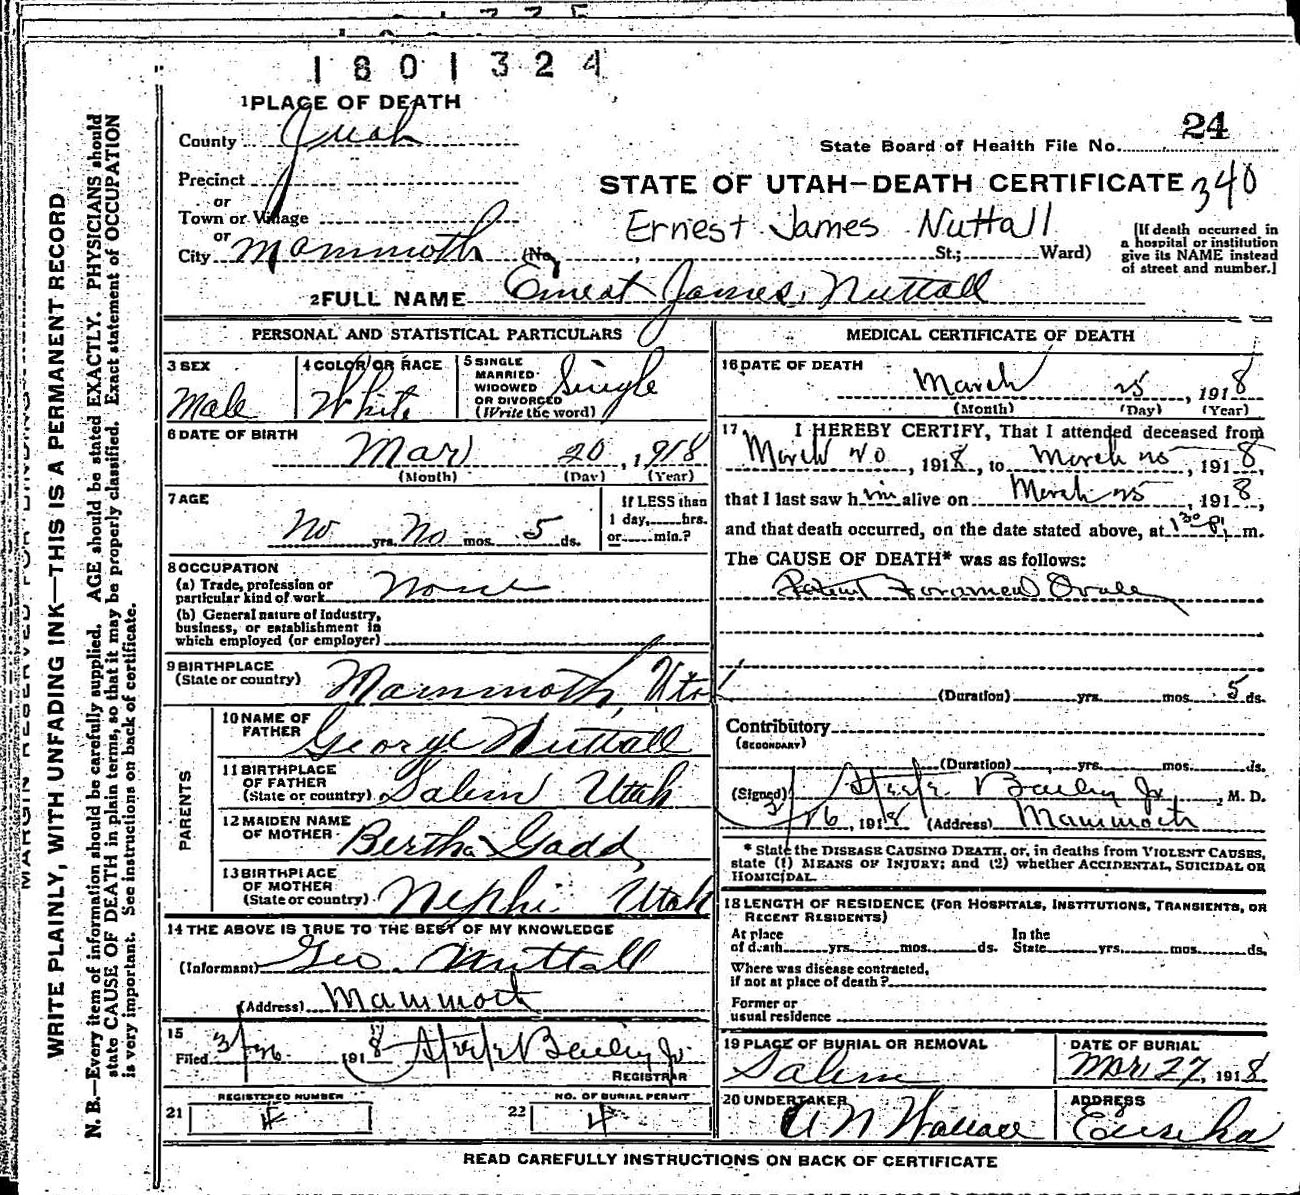 1801324
1 PLACE OF DEATH
County Juab
State Board of Health File No. 24
Precinct
or
STATE OF UTAH—DEATH CERTIFICATE 340
Town or Village
or
Ernest James Nuttall
City Mammoth (No. , St.; Ward)
[If death occurred in
a hospital or institution
give its NAME instead
of street and number.]
2 FULL NAME Ernest James Nuttall
PERSONAL AND STATISTICAL PARTICULARS
3 SEX
Male
4 COLOR OR RACE
White
5 SINGLE
MARRIED
WIDOWED
OR DIVORCED
(Write the word)
Single
6 DATE OF BIRTH
Mar 20, 1918
(Month) (Day) (Year)
7 AGE
No yrs. No mos. 5 ds.
If LESS than
1 day, hrs.
or min.?
8 OCCUPATION
(a) Trade, profession or
particular kind of work None
(b) General nature of Industry,
business, or establishment in
which employed (or employer)
9 BIRTHPLACE
(State or country) Mammoth, Utah
PARENTS
10 NAME OF
FATHER George Nuttall
11 BIRTHPLACE
OF FATHER
(State or country) Salem Utah
12 MAIDEN NAME
OF MOTHER Bertha Gadd
13 BIRTHPLACE
OF MOTHER
(State or country) Nephi Utah
14 THE ABOVE IS TRUE TO THE BEST OF MY KNOWLEDGE
(Informant) Geo. Nuttall
(Address) Mammoth
15
Filed 3/26 1918 Steele Bailey Jr.
REGISTRAR
REGISTERED NUMBER
21 4
NO. OF BURIAL PERMIT
22 4
MEDICAL CERTIFICATE OF DEATH
16 DATE OF DEATH
March 25, 1918
(Month) (Day) (Year)
17 I HEREBY CERTIFY, That I attended deceased from
March 20, 1918, to March 25, 1918,
that I last saw him alive on March 25, 1918,
and that death occurred, on the date stated above, at 1 30 P. m.
The CAUSE OF DEATH* was as follows:
Patent Foramen Ovale
(Duration) yrs. mos. 5 ds.
Contributory
(SECONDARY)
(Duration) yrs. mos. ds.
(Signed) Steele Bailey Jr., M. D.
3/26, 1918 (Address) Mammoth
* State the DISEASE CAUSING DEATH, or, in deaths from VIOLENT CAUSES,
state (1) MEANS OF INJURY; and (2) whether ACCIDENTAL, SUICIDAL OR
HOMICIDAL.
18 LENGTH OF RESIDENCE (FOR HOSPITALS, INSTITUTIONS, TRANSIENTS, OR
RECENT RESIDENTS)
At place
of death yrs. mos. ds.
In the
State yrs. mos. ds.
Where was disease contracted,
if not at place of death?
Former or
usual residence
19 PLACE OF BURIAL OR REMOVAL
Salem
DATE OF BURIAL
Mar 27, 1918
20 UNDERTAKER
A N Wallace
ADDRESS
Eureka
READ CAREFULLY INSTRUCTIONS ON BACK OF CERTIFICATE
MARGIN RESERVED FOR BINDING
WRITE PLAINLY, WITH UNFADING INK—THIS IS A PERMANENT RECORD
N. B.—Every item of information should be carefully supplied. AGE should be stated EXACTLY. PHYSICIANS should
state CAUSE OF DEATH in plain terms, so that it may be properly classified. Exact statement of OCCUPATION
is very important. See instructions on back of certificate.